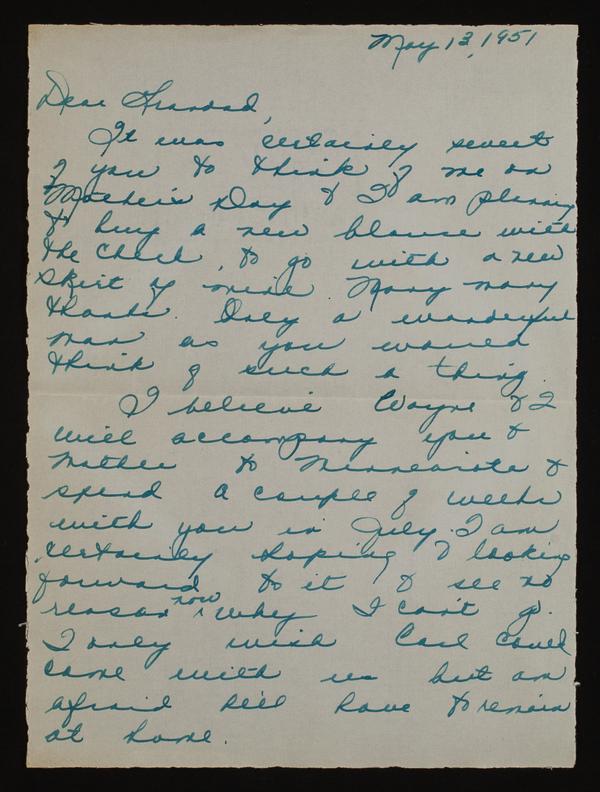 May 13, 1951
Dear Grandad,
It was certainly sweet
of you to think of me on
Mother's Day & I am planning
to buy a new blouse with
the check, to go with a new
skirt of mine. Many many
thanks. Only a wonderful
man as you would
think of such a thing.
I believe Wayne & I
will accompany you &
Mother to Minnesota &
spend a couple of weeks
with you in July. I am
certainly hoping & looking
forward to it & see no
reason now why I can't go.
I only wish Carl could
come with us but am
afraid he'll have to remain
at home.